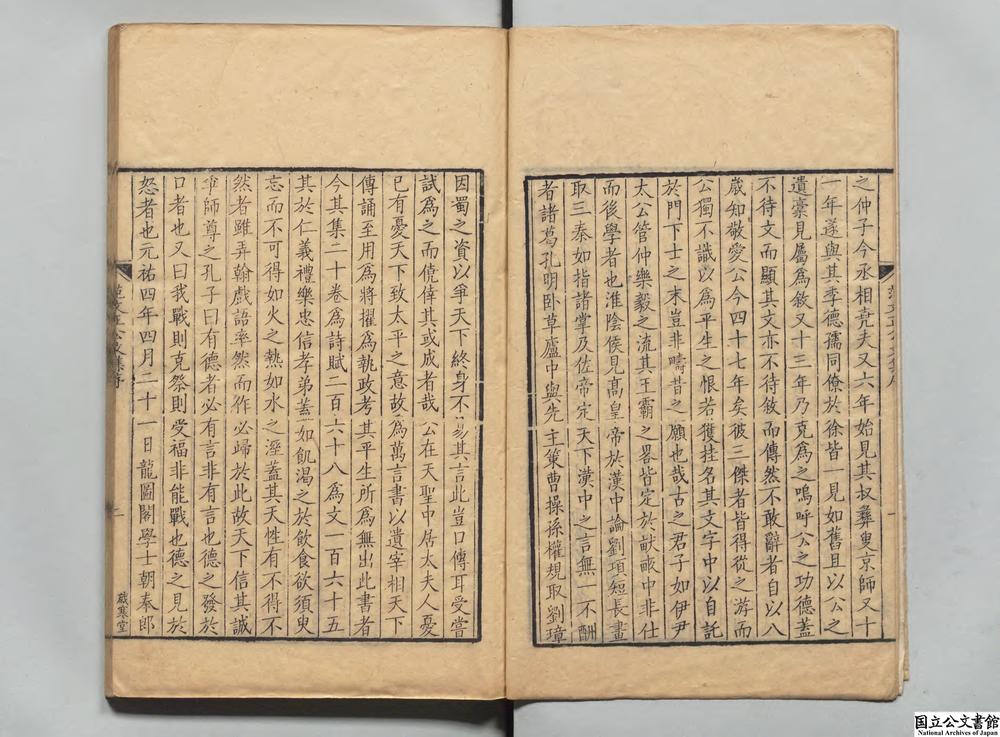 之仲子今丞相堯夫又六年始見其叔彝叟京師又十
一年遂與其季德孺同僚於徐皆一見如舊且以公之
遺藁見屬為敘又十三年乃克為之嗚呼公之功德蓋
不待文而顯其文亦不待敘而傳然不敢辭者自以八
歲知敬愛公今四十七年矣彼三傑者皆得從之游而
公獨不識以為平生之恨若獲挂名其文字中以自託
於門下士之末豈非疇昔之願也哉古之君子如伊尹
太公管仲樂毅之流其王霸之畧皆定於畎畝中非仕
而後學者也淮陰侯見髙皇帝於漢中論劉項短長畫
取三秦如指諸掌及佐帝定天下漢中之言無一不酬
者諸葛孔明卧草廬中與先主策曹操孫權規取劉璋
因蜀之資以爭天下終身不易其言此豈口傳耳受嘗
試為之而僥倖其或成者哉公在天聖中居太夫人憂
已有憂天下致太平之意故為萬言書以遺宰相天下
傳誦至用為將擢為執政考其平生所為無出此書者
今其集二十卷為詩賦二百六十八為文一百六十五
其於仁義禮樂忠信孝弟蓋如飢渴之於飲食欲須臾
忘而不可得如火之熱如水之溼蓋其天性有不得不
然者雖弄翰戲語率然而作必歸於此故天下信其誠
爭師尊之孔子曰有德者必有言非有言也德之發於
口者也又曰我戰則克祭則受福非能戰也德之見於
怒者也元祐四年四月二十一日龍圖閣學士朝奉郎
范文正公文集序
歲寒堂
国立公文書館
National Archives of Japan